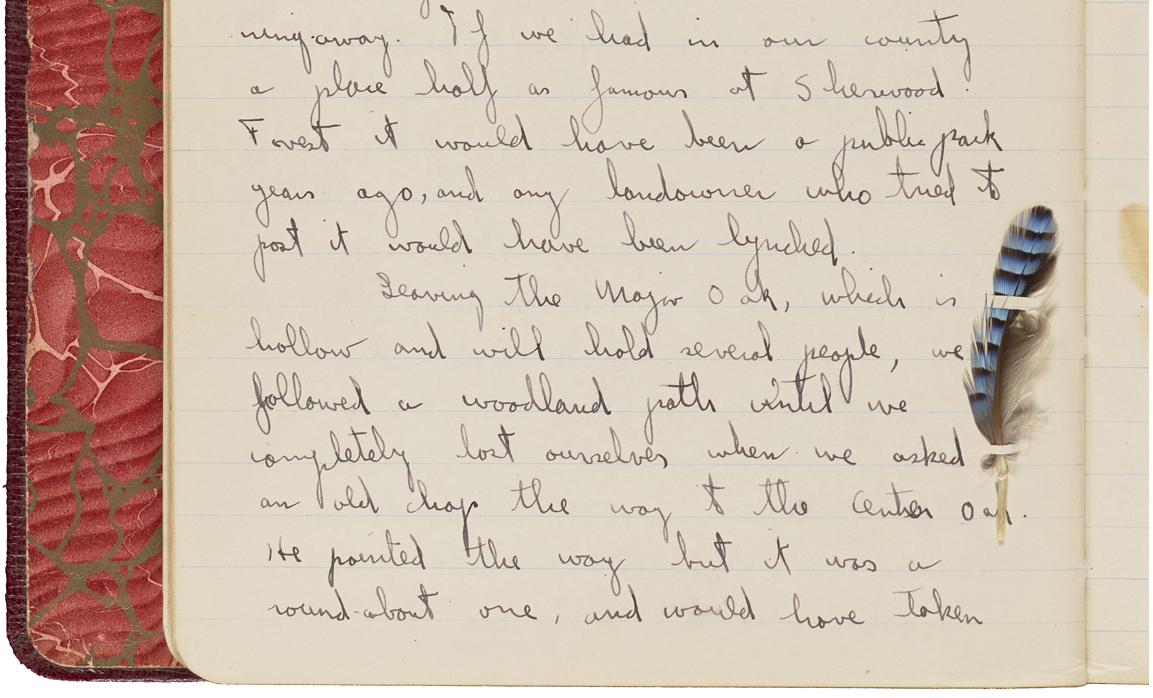 ning away. If we had in our county
a place half as famous at Sherwood
Forest it would have been a public park
years ago, and any landowner who tried to
post it would have been lynched.
Leaving the Major Oak, which is
hollow and will hold several people, we
followed a woodland path until we
completely lost ourselves when we asked
an old chap the way to the Center Oak.
He pointed the way but it was a
round-about one, and would have taken